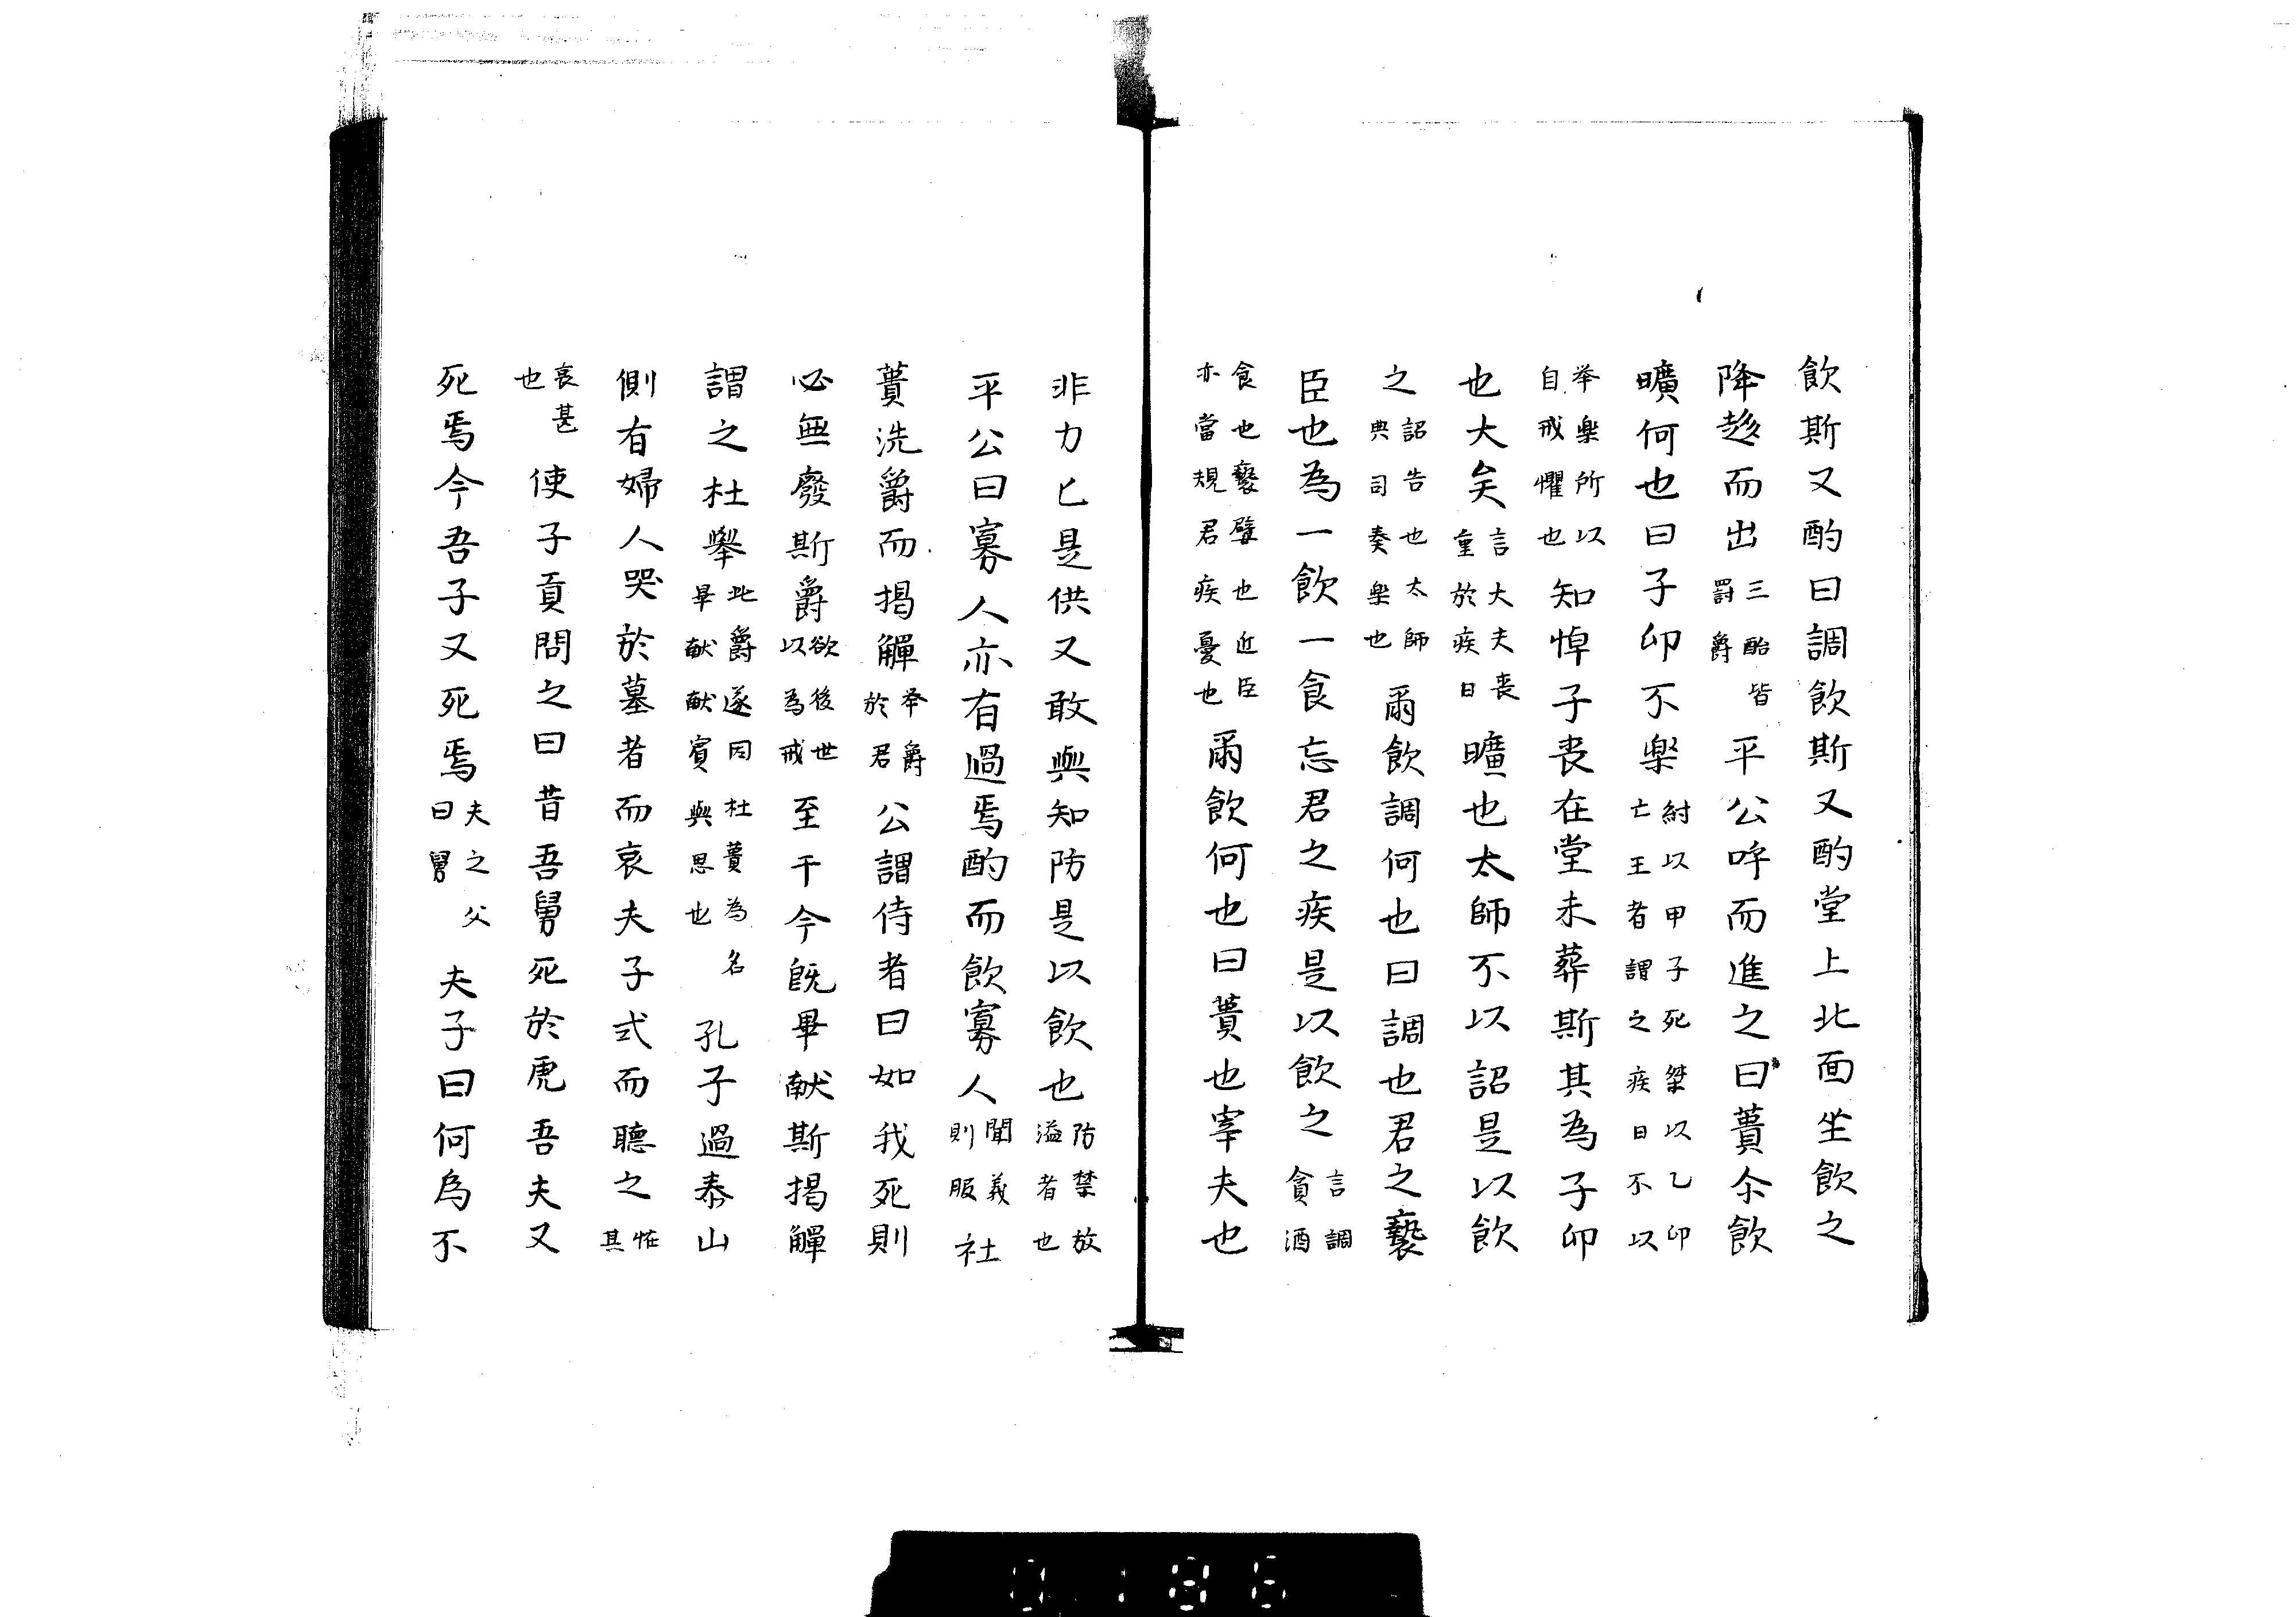 飲斯又酌曰調飲斯又酌堂上北面坐飲之
降趍而出三酌皆罰爵平公呼而進之曰蕢尒飲
曠何也曰子卯不樂紂以甲子死桀以乙卯亡王者謂之疾日不以
举樂所以自戒懼也知悼子丧在堂未葬斯其為子卯
也大矣言大夫丧重於疾日曠也太師不以詔是以飲
之詔告也太師典司奏樂也爾飲調何也曰調也君之褻
臣也為一飲一食忘君之疾是以飲之言調貪酒
食也褻嬖也近臣亦當規君疾憂也爾飲何也曰蕢也宰夫也
非力匕是供又敢與知防是以飲也防禁放溢者也
平公曰寡人亦有過焉酌而飲寡人聞義則服社
蕢洗爵而揚觶举爵於君公謂侍者曰如我死則
必無廢斯爵欲後世以為戒至于今既畢献斯揚觶
謂之杜舉此爵遂因杜蕢為名畢献献賓與君也孔子過泰山
側有婦人哭於墓者而哀夫子式而聽之恠其
哀甚也使子貢問之曰昔吾舅死於虎吾夫又
死焉今吾子又死焉夫之父曰舅夫子曰何為不
0186